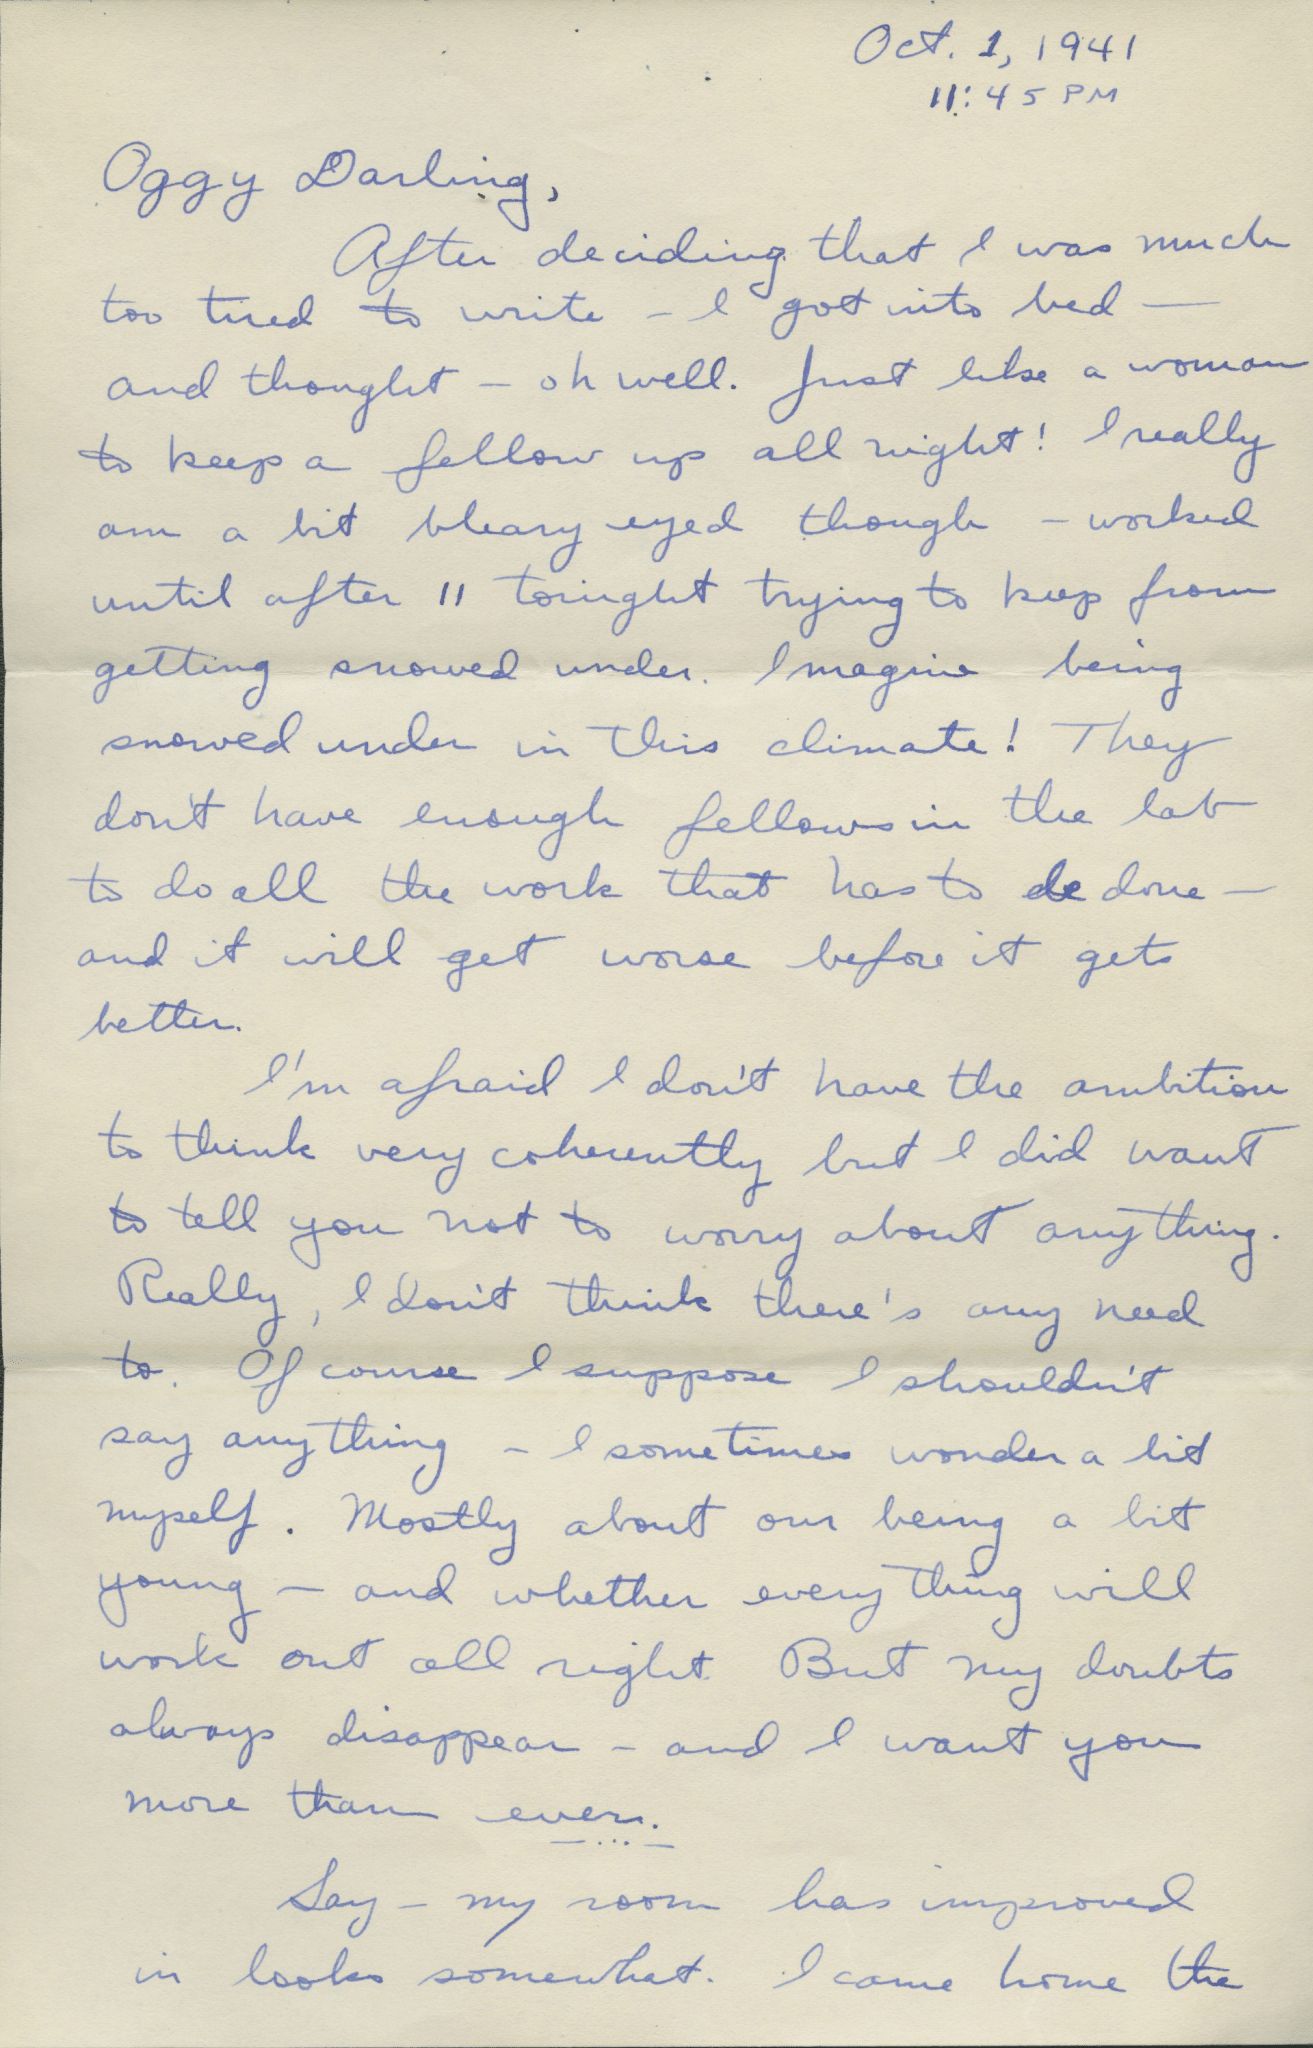 Oct. 1, 1941
11:45 PM
Oggy Darling,
After deciding that I was much
too tired to write – I got into bed –
and thought – oh well. Just like a woman
to keep a fellow up all night! I really
am a bit bleary eyed though – worked
until after 11 tonight trying to keep from
getting snowed under. Imagine being
snowed under in this climate! They
don't have enough fellows in the lab
to do all the work that has to be done –
and it will get worse before it gets
better.
I'm afraid I don't have the ambition
to think very coherently but I did want
to tell you not to worry about anything.
Really, I don't think there's any need
to. Of course I suppose I shouldn't
say anything – I sometimes wonder a bit
myself. Mostly about our being a bit
young – and whether everything will
work out all right. But my doubts
always disappear – and I want you
more than ever.
– ... –
Say – my room has improved
in looks somewhat. I came home the